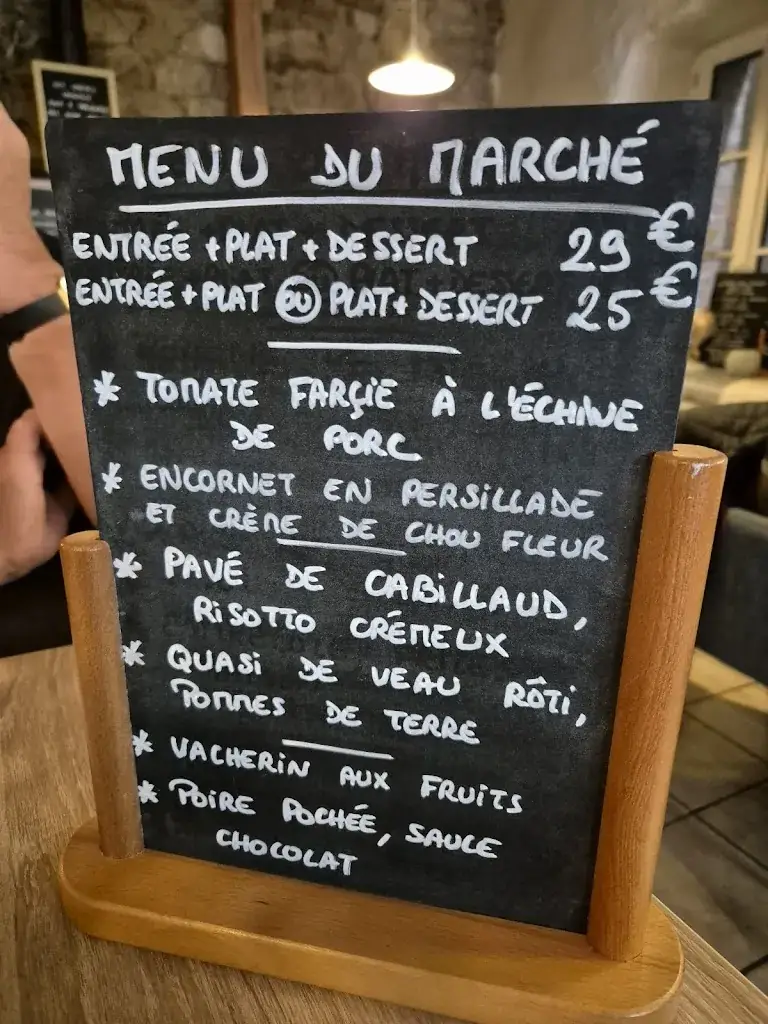 MENU DU MARCHÉ
ENTRÉE + PLAT + DESSERT 29 €
ENTRÉE + PLAT OU PLAT + DESSERT 25 €
* TOMATE FARÇIE À L'ÉCHINE
DE PORC
* ENCORNET EN PERSILLADE
ET CRÈME DE CHOU FLEUR
* PAVÉ DE CABILLAUD,
RISOTTO CRÉMEUX
* QUASI DE VEAU RÔTI,
POMMES DE TERRE
* VACHERIN AUX FRUITS
* POIRE POCHÉE, SAUCE
CHOCOLAT